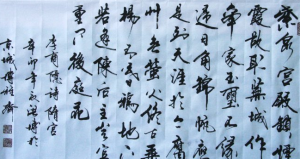 紫泉宫殿鎖煙
霞欲取蕪城作
帝家玉璽不缘
歸日角錦帆應
是到天涯於今腐
草無螢火終古垂
楊有暮鴉地下
若逢陳后主豈宜
重問後庭花
李商隱詩隋宫
辛卯年
京城